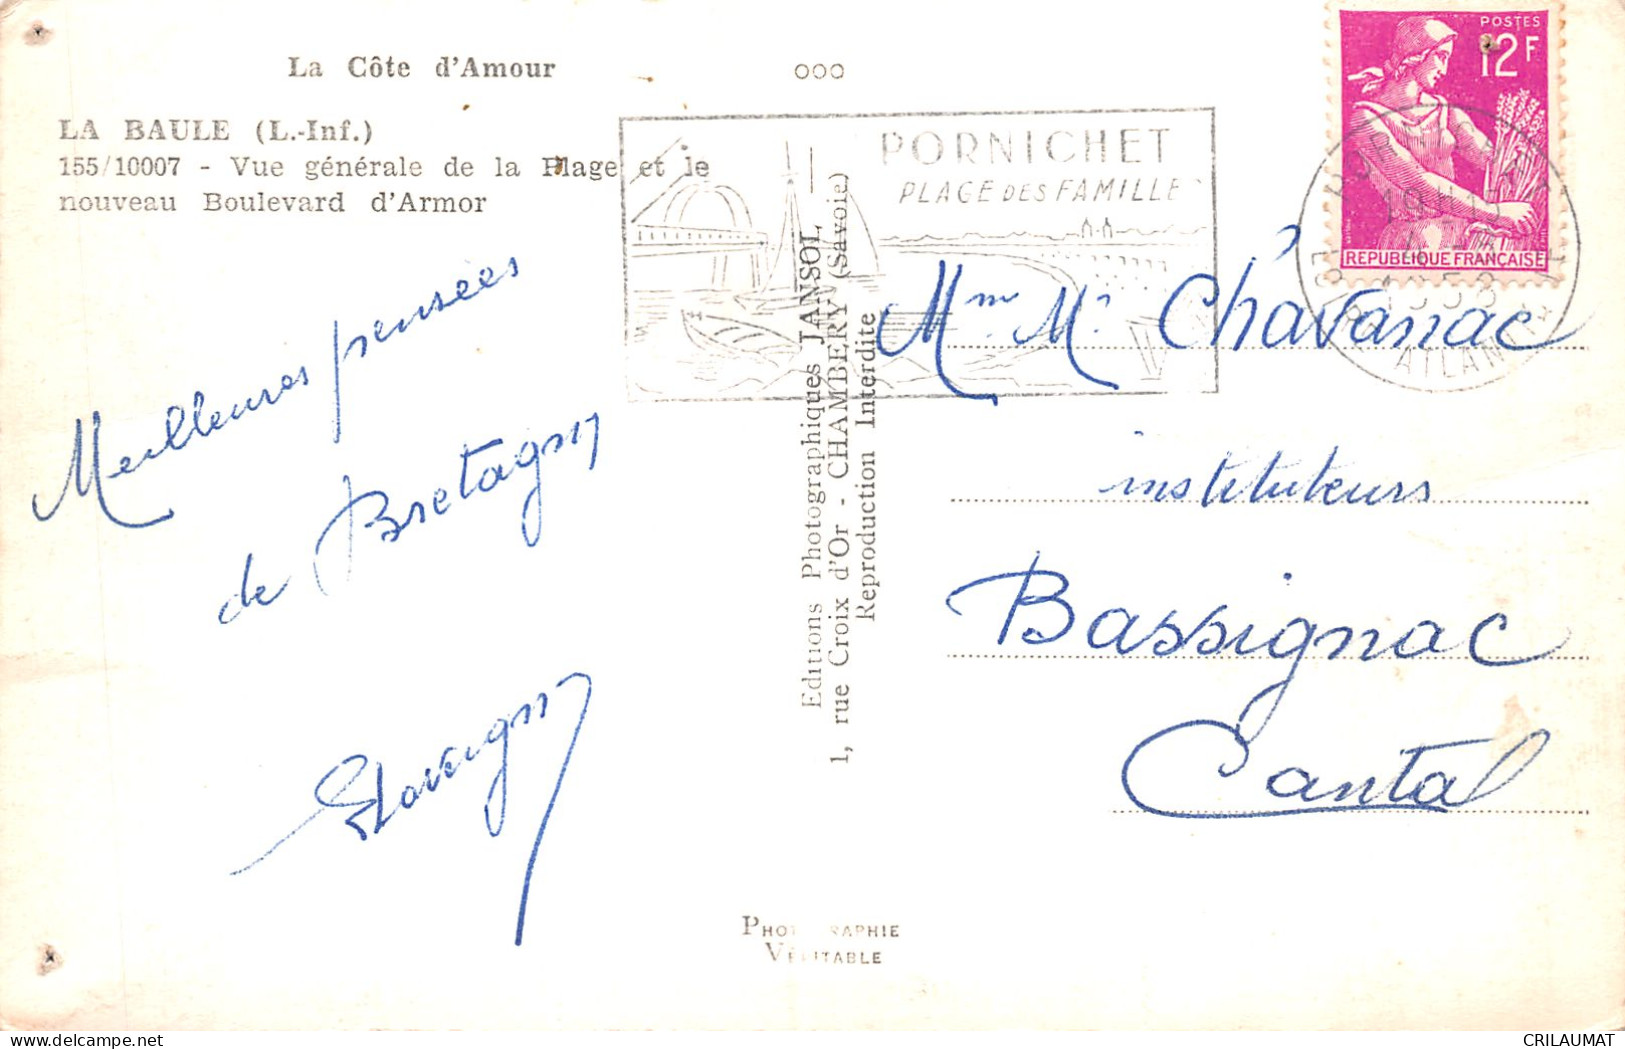 La Côte d'Amour
LA BAULE (L.-Inf.)
155/10007 - Vue générale de la Plage et le
nouveau Boulevard d'Armor
Meilleures pensées
de Bretagne
PORNICHET
PLAGE DES FAMILLES
Editions Photographiques JANSOL
1, rue Croix d'Or - CHAMBERY (Savoie)
Reproduction Interdite
PHOTOGRAPHIE
VÉRITABLE
POSTES
12F
REPUBLIQUE FRANÇAISE
PORNICHET
1958
Mme Mr Chavanac
instituteurs
Bassignac
Cantal
CRILAUMAT